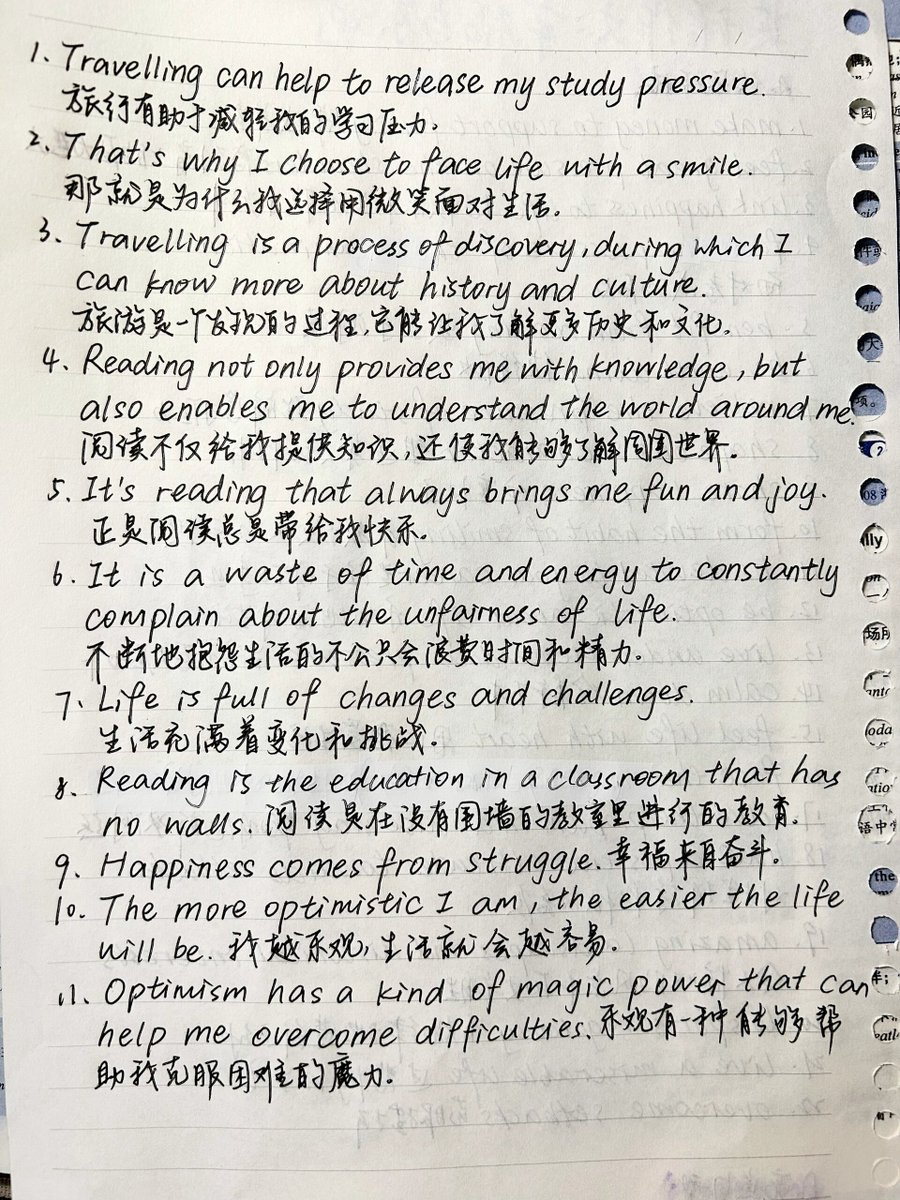 1. Travelling can help to release my study pressure.
旅行有助于减轻我的学习压力.
2. That's why I choose to face life with a smile.
那就是为什么我选择用微笑面对生活.
3. Travelling is a process of discovery, during which I
can know more about history and culture.
旅游是一个发现的过程,它能让我了解更多历史和文化.
4. Reading not only provides me with knowledge, but
also enables me to understand the world around me.
阅读不仅给我提供知识,还使我能够了解周围世界.
5. It's reading that always brings me fun and joy.
正是阅读总是带给我快乐.
6. It is a waste of time and energy to constantly
complain about the unfairness of life.
不断地抱怨生活的不公只会浪费时间和精力.
7. Life is full of changes and challenges.
生活充满着变化和挑战.
8. Reading is the education in a classroom that has
no walls. 阅读是在没有围墙的教室里进行的教育.
9. Happiness comes from struggle. 幸福来自奋斗.
10. The more optimistic I am, the easier the life
will be. 我越乐观,生活就会越容易.
11. Optimism has a kind of magic power that can
help me overcome difficulties. 乐观有一种能够帮
助我克服困难的魔力.